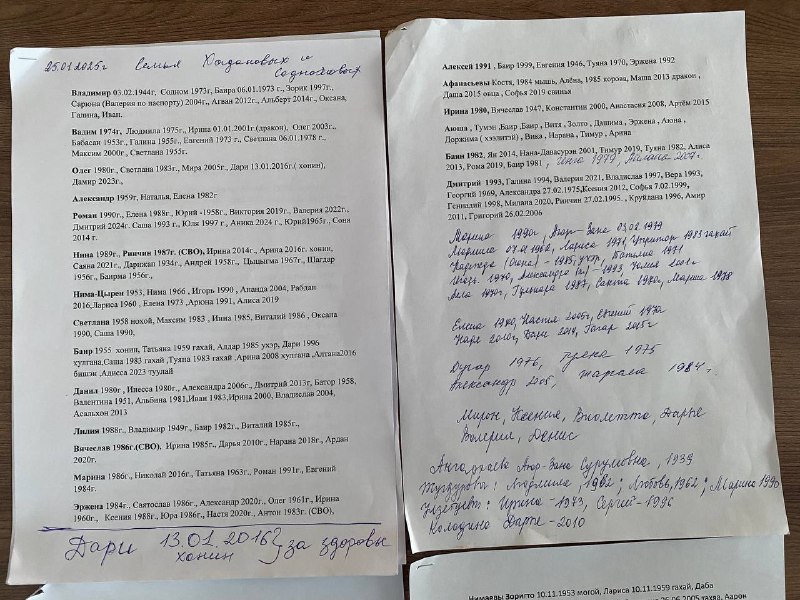 25.01.2025г Семья Хогдановых и
Владимир 03.02.1944г, Содном 1973г, Баира 06.01.1973 г., Зорик 1997г.,
Сарюна (Валерия по паспорту) 2004г., Агван 2012г., Альберт 2014г., Оксана,
Галина, Иван.
Вадим 1974г, Людмила 1975г., Ирина 01.01.2001г.(дракон), Олег 2003г.,
Бабасан 1953г., Галина 1955г., Евгений 1973 г., Светлана 06.01.1978 г.,
Максим 2000г., Светлана 1955г.
Олег 1980г., Светлана 1983г., Мира 2005г., Дари 13.01.2016г.( хонин),
Дамир 2023г.,
Александр 1959г, Наталья, Елена 1982г
Роман 1990г., Елена 1988г., Юрий -1958г., Виктория 2019г., Валерия 2022г.,
Дмитрий 2024г. Саша 1993 г., Юля 1997 г., Аника 2024 г., Юрий1965г., Соня
2014 г.
Нина 1989г., Ринчин 1987г. (СВО), Ирина 2014г., Арина 2016г. хонин,
Саяна 2021г., Дарижап 1934г., Андрей 1958г., Цыцыгма 1967г., Шагдар
1956г., Баирма 1956г.,
Нима-Цырен 1953, Нима 1966 , Игорь 1990 , Ананда 2004, Рабдан
2016,Лариса 1960 , Елена 1973 ,Арюна 1991, Алиса 2019
Светлана 1958 нохой, Максим 1983 , Инна 1985, Виталий 1986 , Оксана
1990, Саша 1990,
Баир 1955 хонин, Татьяна 1959 гахай, Алдар 1985 ухэр, Дари 1996
хулгана,Саша 1983 гахай ,Туяна 1983 гахай ,Арина 2008 хулгана ,Алтана2016
бишэн ,Алисса 2023 туулай
Данил 1980г , Инесса 1980г., Александра 2006г., Дмитрий 2013г, Батор 1958,
Валентина 1951, Альбина 1981,Иван 1983,Ирина 2000, Владислав 2004,
Асалхон 2013
Лилия 1988г., Владимир 1949г., Баир 1982г., Виталий 1985г.,
Вячеслав 1986г.(СВО), Ирина 1985г., Дарья 2010г., Нарана 2018г., Ардан
2020г.
Марина 1986г., Николай 2016г., Татьяна 1963г., Роман 1991г., Евгений
1984г.
Эржена 1984г., Святослав 1986г., Александр 2020г., Олег 1961г., Ирина
1960г., Ксения 1988г., Юра 1986г., Настя 2020г., Антон 1983г. (СВО),
Дари 13.01.2016г за здоровье
хонин
Алексей 1991 , Баир 1999, Евгения 1946, Туяна 1970, Эржена 1992
Афанасьевы Костя, 1984 мышь, Алёна, 1985 корова, Маша 2013 дракон ,
Даша 2015 овца , Софья 2019 свинья
Ирина 1980, Вячеслав 1947, Константин 2000, Анастасия 2008, Артём 2015
Аюша , Тумэн ,Баир ,Баир , Витя , Золто , Дашима , Эржена , Аюна ,
Доржима ( хээлитэй) , Вика , Нарина , Тимур , Арина
Баин 1982, Ян 2014, Нана-Данасурэн 2001, Тимур 2019, Туяна 1982, Алиса
2013, Рома 2019, Баир 1981 , Инга 1979, 2007г.
Дмитрий 1993, Галина 1994, Валерия 2021, Владислав 1997, Вера 1993,
Георгий 1969, Александра 27.02.1975,Ксения 2012, Софья 7.02.1999,
Геннадий 1998, Милана 2020, Ринчин 27.02.1995. , Круйлана 1996, Амир
2011, Григорий 26.02.2006
Марина 1990г, 03.02.1979
Людмила 1962, Лариса 1971, 1983 гахай
Надежда - 1985, ухэр, Татьяна 1971
1970, Александра - 1993, Юлия 2001г
1970г, Гульнара 1987, 1990г, Мариша 1978
Елена 1980, Настя 2005г, Евгений 1970г
2010г, Дари 2018, 2015г
Дугар 1976, 1975
Александр 2005, Жаргала 1984г.
Мирон, Ксения, Виолетта, Дарья
Валерия, Денис
Сурумовна, 1939
Людмила, 1962; Любовь, 1962; Марина 1990
Ирина - 1973, Сергей - 1996
Колодина Дарья - 2010
Нимаевы Зоригто 10.11.1953 могой, Лариса 10.11.1959 гахай, Даба
26.06.2005 тахяа, Аарон